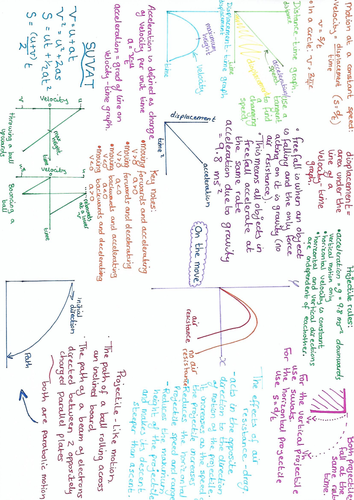 Motion at constant speed
velocity = displacement (s = d/t)
time
v = s/t
• In a circle: v = 2πr
Distance-time graph
distance
time
Displacement-time graph
displacement
velocity
Acceleration is defined as change
of velocity per unit time
acceleration = grad of line on
velocity-time graph
SUVAT
v = u + at
v² = u² + 2as
S = ut + ½at²
S = (u+v)/2 t
velocity
velocity
throwing a ball
upwards
Bouncing a
ball
displacement =
area under the
line of a
velocity time
graph
• free fall is when an object
is falling and the only force
acting on it is gravity (no
air resistance).
• This means all objects in
free fall accelerate at
the same rate
acceleration due to gravity
= 9.8 ms⁻²
displacement
time²
acceleration
Key notes:
• moving forwards and accelerating
v>0 a>0
• moving forwards and decelerating
v>0 a<0
• moving backwards and accelerating
v<0 a<0
• moving backwards and decelerating
v<0 a>0
On the move
Projectile rules:
• acceleration = g = 9.8 ms⁻² downwards
vertical motion only
• horizontal velocity is constant
• horizontal and vertical directions
are independent of eachother.
For the vertical projectile
use suvats.
For the horizontal projectile
use s = d/t
Both projectiles
fall at the
same rate
y
x
air
resistance
no air
resistance
The effect of air
resistance drag
- acts in the opposite
direction to the direction
of motion of the projectile
- it increases as the speed of
the projectile increases
- reduces the maximum
height of the projectile
and makes its descent
steeper than ascent.
initial
direction
Path
Projectile-Like motion
• The path of a ball rolling across
an inclined board
• The path of a beam of electrons
directed between 2 oppositely
charged parallel plates
both are parabolic motion